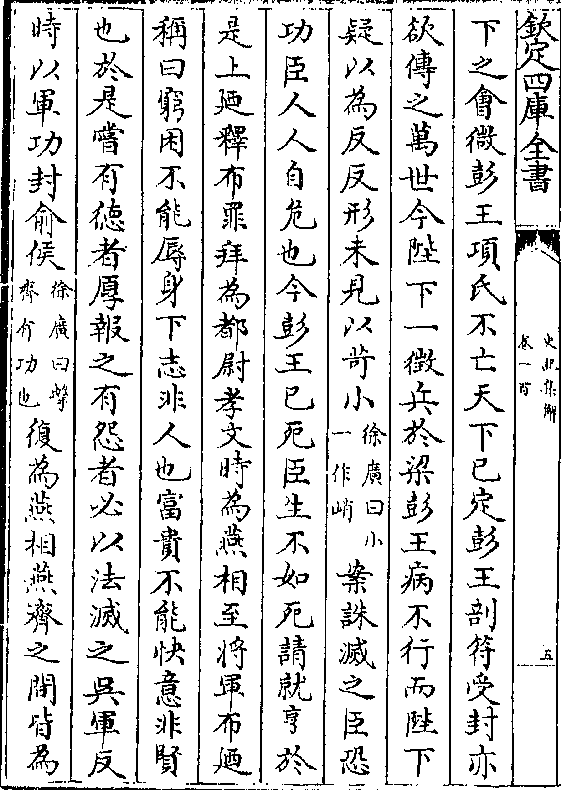 欽定四庫全書
史記集解
卷一百
五
下之會微彭王項氏不亡天下已定彭王剖符受封亦
欲傳之萬世今陛下一徴兵於梁彭王病不行而陛下
疑以為反反形未見以苛小徐廣曰小一作峭案誅滅之臣恐
功臣人人自危也今彭王已死臣生不如死請就亨於
是上廼釋布罪拜為都尉孝文時為燕相至將軍布廼
稱曰窮困不能辱身下志非人也富貴不能快意非賢
也於是嘗有德者厚報之有怨者必以法滅之吳軍反
時以軍功封俞侯徐廣曰擊齊有功也復為燕相燕齊之間皆為